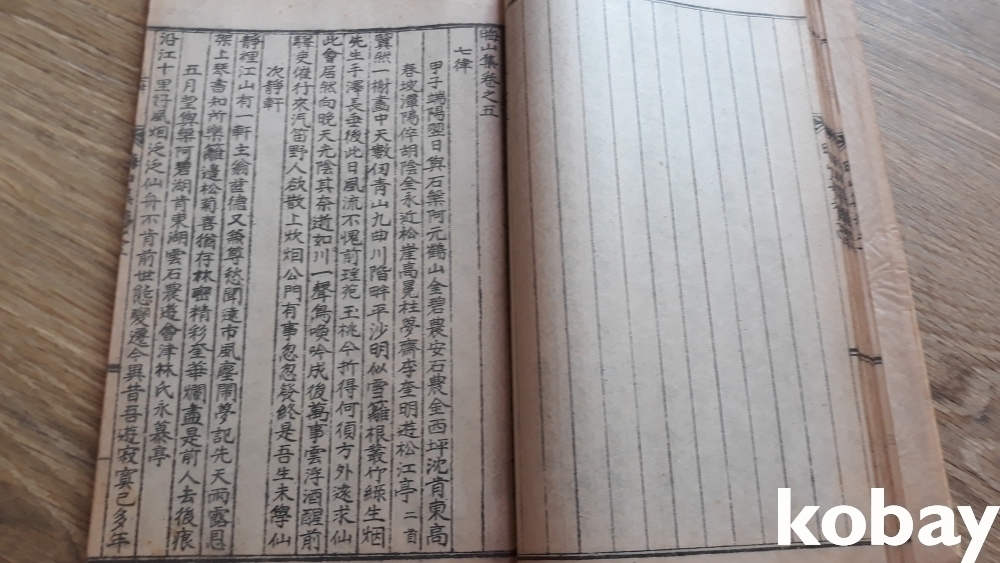 晦山集卷之五
七律
甲子端陽翌日與石槃阿元鶴山金碧農安石農金西坪沈肯東高
春坡潭陽倅胡陰金永近松崖高晃柱夢齋李奎明遊松江亭二首
翼然一榭畵中天數仞青山九曲川階畔平沙明似雪籬根叢竹綠生烟
先生手澤長垂後此日風流不愧前瑤苑玉桃今折得何須方外遠求仙
此會居然向晚天光陰其奈逝如川一聲鳥喚吟成後萬事雲浮酒醒前
驛吏催行來汽笛野人欲散上炊烟公門有事忽忽發終是吾生未學仙
次靜軒
靜裡江山有一軒主翁齒德又兼尊愁聞遠市風塵鬧夢記先天雨露恩
架上琴書知所樂籬邊松菊喜猶存林密精彩奎華爛盡是前人去後痕
五月望與槃阿碧湖肯東湖雲石農遊會津林氏永慕亭
沿江十里好風烟泛泛仙舟不肯前世態變遷今與昔吾遊寂寞已多年
kobay